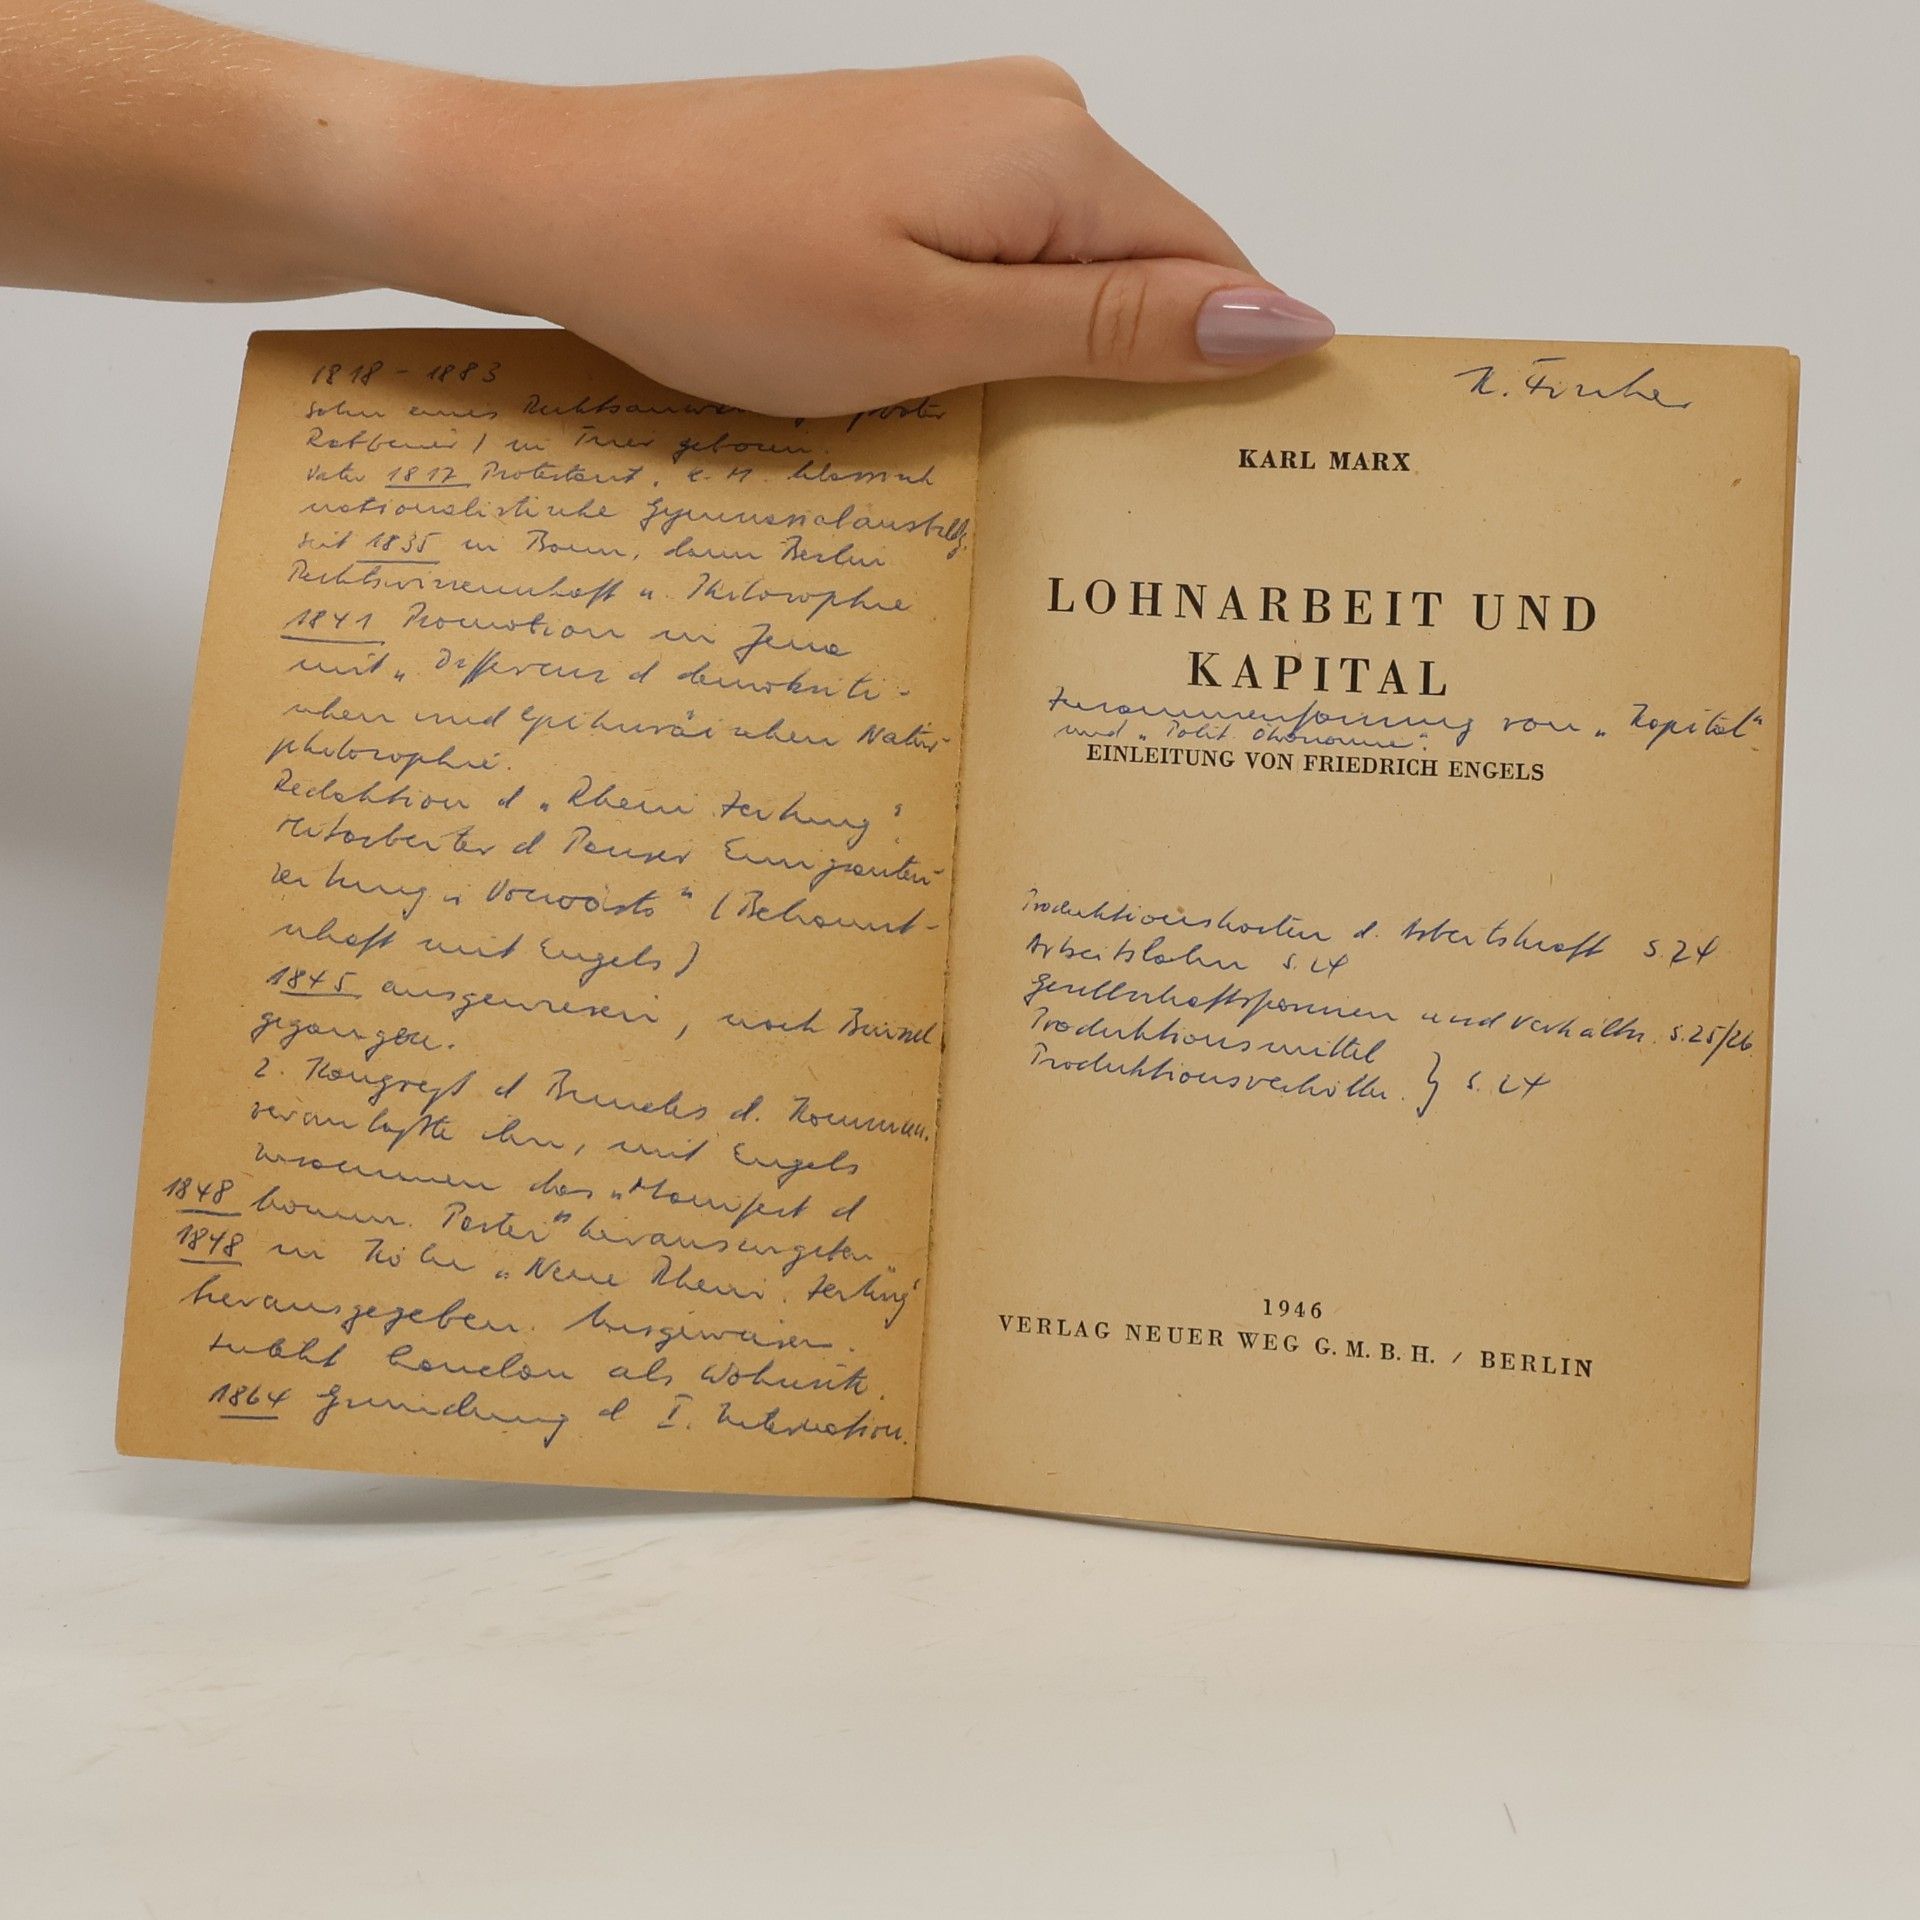 1818 - 1883
Sohn eines
Rabbiner) in Trier geboren.
Vater 1817 Protestant. K. M. klassisch
nationalistische Gymnasialausbildg.
seit 1835 in Bonn, dann Berlin
Rechtswissenschaft u. Philosophie
1841 Promotion in Jena
mit „Differenz d demokriti-
schen und Epikuräischen Natur-
philosophie.
Redaktion d „Rhein. Zeitung".
Mitarbeiter d Pariser Emigranten-
zeitung „Vorwärts" (Bekannt-
schaft mit Engels)
1845 ausgewiesen, nach Brüssel
gegangen.
2. Kongreß d Bundes d. Kommun.
veranlaßte ihn, mit Engels
zusammen das „Manifest d
1848 komm. Partei" herauszugeben
1848 in Köln „Neue Rhein. Zeitung"
herausgegeben. Ausgewiesen.
wählt London als Wohnsitz.
1864 Gründung d I. Internation.
K. Fischer
KARL MARX
LOHNARBEIT UND
KAPITAL
Zusammenfassung von „Kapital"
und „Polit. Ökonomie".
EINLEITUNG VON FRIEDRICH ENGELS
Produktionskosten d. Arbeitskraft S. 24
Arbeitslohn S. 24
Gesellschaftsformen und Verhältn. S. 25/26
Produktionsmittel
Produktionsverhältn. } S. 24
1946
VERLAG NEUER WEG G. M. B. H. / BERLIN